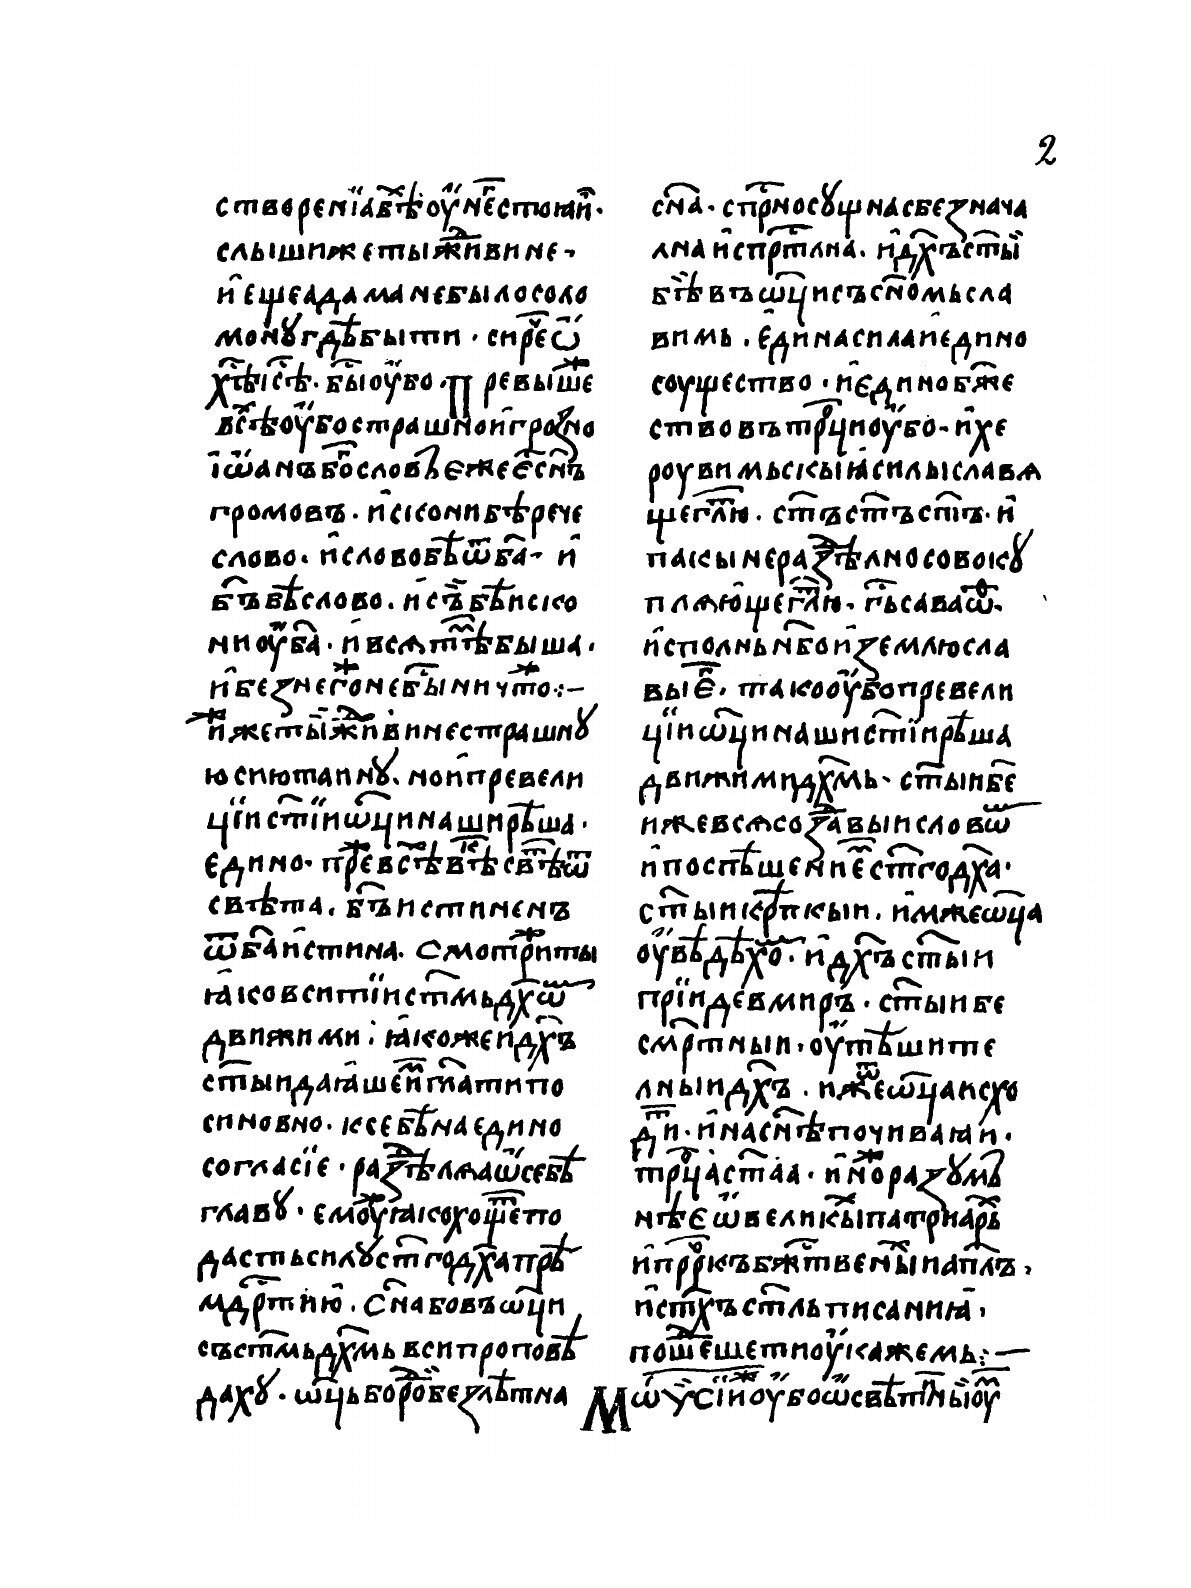 2
створенїа вѣ оу҆ не̑стюꙗй.
слыши же ты жиⷣвине-
и҆ еще адама не было соло
монꙋ гдѣ быти. сирѣⷱ ѿ
хт҃ѣ і҆сѣ҃. бы҃ оу҆бо. превышеⷤ
всѣⷯ оу҆бо страшно и҆ грозно
і҆ѡ҆анъ бго҃словъ еже є҆ сн҃ъ
громовъ. и҆скони бѣ рече
слово. и҆ слово бѣ ѿ ба҃. и҆
бг҃ъ бѣ слово. и҆ съ бѣ иско
ни оу҆ ба҃. и҆ всѧ тѣмⷨ быша.
и҆ без негоⷤ не бы҃ ничтоⷤ:—
и҆ⷤ же ты жиⷣвине страшнꙋ
ю сию таинꙋ. но и҆ превели
цїи ст҃їи ѡ҆ц҃и наши рѣша.
едино. преⷤ всѣⷯ вѣкⷦ свѣтⷮ ѿ
свѣта. бг҃ъ истиненъ
ѿ ба҃ и҆стина. Смотриⷤ ты
ꙗ҆ко вси тїи ст҃мь дх҃ѡⷨ
движими. ꙗ҆коже и҆ дх҃ъ
ст҃ыи даꙗ҆ше и҆мⷨ гл҃ати по
синовно. к себѣ на едино
согласїе. раздѣлѧа ѿ себѣ
главꙋ. емоуⷤ ꙗ҆ко хощеⷮ по
дасть силꙋ ст҃го дх҃а прѣ
мдр҃тию҆. Сн҃а бо въ ѡ҆ц҃и
съ ст҃мь дх҃мь вси проповѣ
дахꙋ. ѡ҆ц҃ь бо роⷣ безлѣтна
сн҃а. спр҃носꙋщна с безнача
лна и҆ спрⷭ҇тлна. и҆ дх҃ъ ст҃ы
бг҃ѣ въ ѡ҆ц҃и съ сн҃омь сла
вимь. є҆дина сила и҆ едино
соущество. и҆ єдино бж҃е
ство въ трⷪ҇ци оу҆бо. и҆ хе
роувимьскыꙗ҆ силы славѧ
ще гл҃юⷮ. ст҃ъ ст҃ъ ст҃ъ. и҆
пакы нераздѣлно совокꙋ
плѧю҆ще гл҃юⷮ. гь҃ саваѡⷴ.
и҆сполнь нб҃о и҆ землю сла
вы еⷢ҇. тако оу҆бо превели
цїи ѡ҆ц҃и наши ст҃їи рѣша
движими дх҃мь. ст҃ы и бе҃
иже всѧ создавыи словѡⷨ
и҆ поспѣшениеⷨ ст҃го дх҃а.
ст҃ыи крѣпкыи. и҆мже ѡ҆ц҃а
оу҆вѣдѣхоⷨ. и҆ дх҃ъ ст҃ыи
прїиде в миръ. ст҃ыи бе
смр҃тныи. оу҆тѣшите
лныи дх҃ъ. иже ѿ ѡ҆ц҃а исхо
диⷮ. и҆ на сн҃ѣ почиваꙗи.
трⷪ҇ца ст҃аа. и҆но разꙋмъⷤ
нѣе ѿ великыⷯ патриархъ
и҆ прⷪ҇ркъ бжⷭ҇твеныⷯ и апл҃ъ,
и҆ стх҃ъ ст҃ль писаниꙗ҆.
пошеⷣше ти оу҆кажемь:—
Мѡ҆ѵ҆сїи оу҆боⷤ ѡ҆ свѣтлныи оу